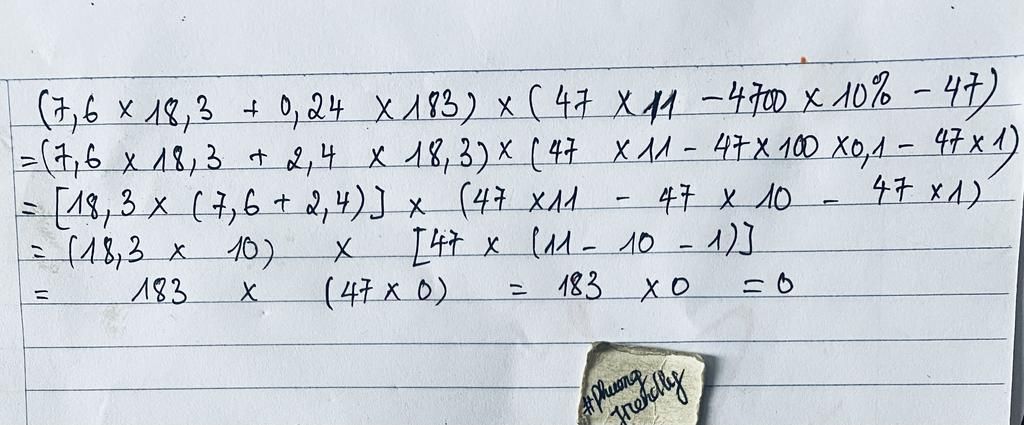 (7,6 × 18,3 + 0,24 × 183) × (47 × 11 - 4700 × 10% - 47)
= (7,6 × 18,3 + 2,4 × 18,3) × (47 × 11 - 47 × 100 × 0,1 - 47 × 1)
= [18,3 × (7,6 + 2,4)] × (47 × 11 - 47 × 10 - 47 × 1)
= (18,3 × 10) × [47 × (11 - 10 - 1)]
= 183 × (47 × 0) = 183 × 0 = 0
#Phuong
friendly